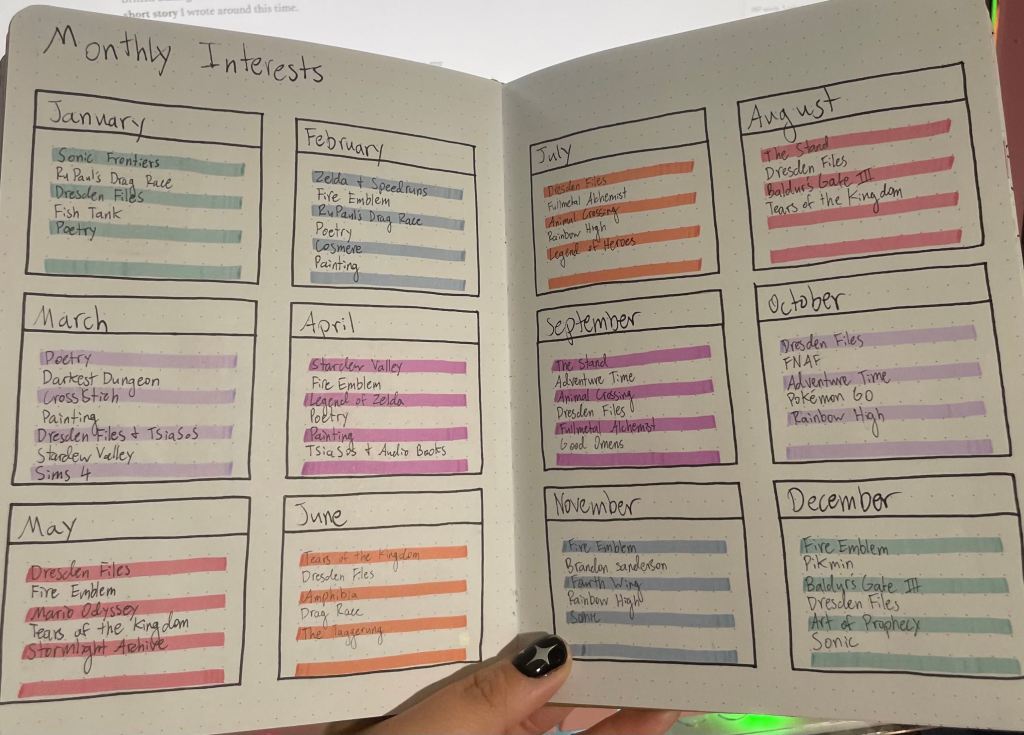 short story I wrote around this time.
Monthly Interests
January
Sonic Frontiers
RuPaul's Drag Race
Dresden Files
Fish Tank
Poetry
February
Zelda & Speedruns
Fire Emblem
RuPaul's Drag Race
Poetry
Cosmere
Painting
March
Poetry
Darkest Dungeon
Cross Stich
Painting
Dresden Files & TSiaSoS
Stardew Valley
Sims 4
April
Stardew Valley
Fire Emblem
Legend of Zelda
Poetry
Painting
TSiaSoS & Audio Books
May
Dresden Files
Fire Emblem
Mario Odyssey
Tears of the Kingdom
Stormlight Archive
June
Tears of the Kingdom
Dresden Files
Amphibia
Drag Race
The Taggerung
July
Dresden Files
Fullmetal Alchemist
Animal Crossing
Rainbow High
Legend of Heroes
August
The Stand
Dresden Files
Baldurs Gate III
Tears of the Kingdom
September
The Stand
Adventure Time
Animal Crossing
Dresden Files
Fullmetal Alchemist
Good Omens
October
Dresden Files
FNAF
Adventure Time
Pokemon GO
Rainbow High
November
Fire Emblem
Brandon Sanderson
Fourth Wing
Rainbow High
Sonic
December
Fire Emblem
Pikmin
Baldur's Gate III
Dresden Files
Art of Prophecy
Sonic